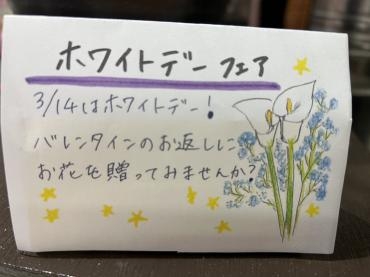 ホワイトデーフェア
3/14はホワイトデー!
バレンタインのお返しに
お花を贈ってみませんか?